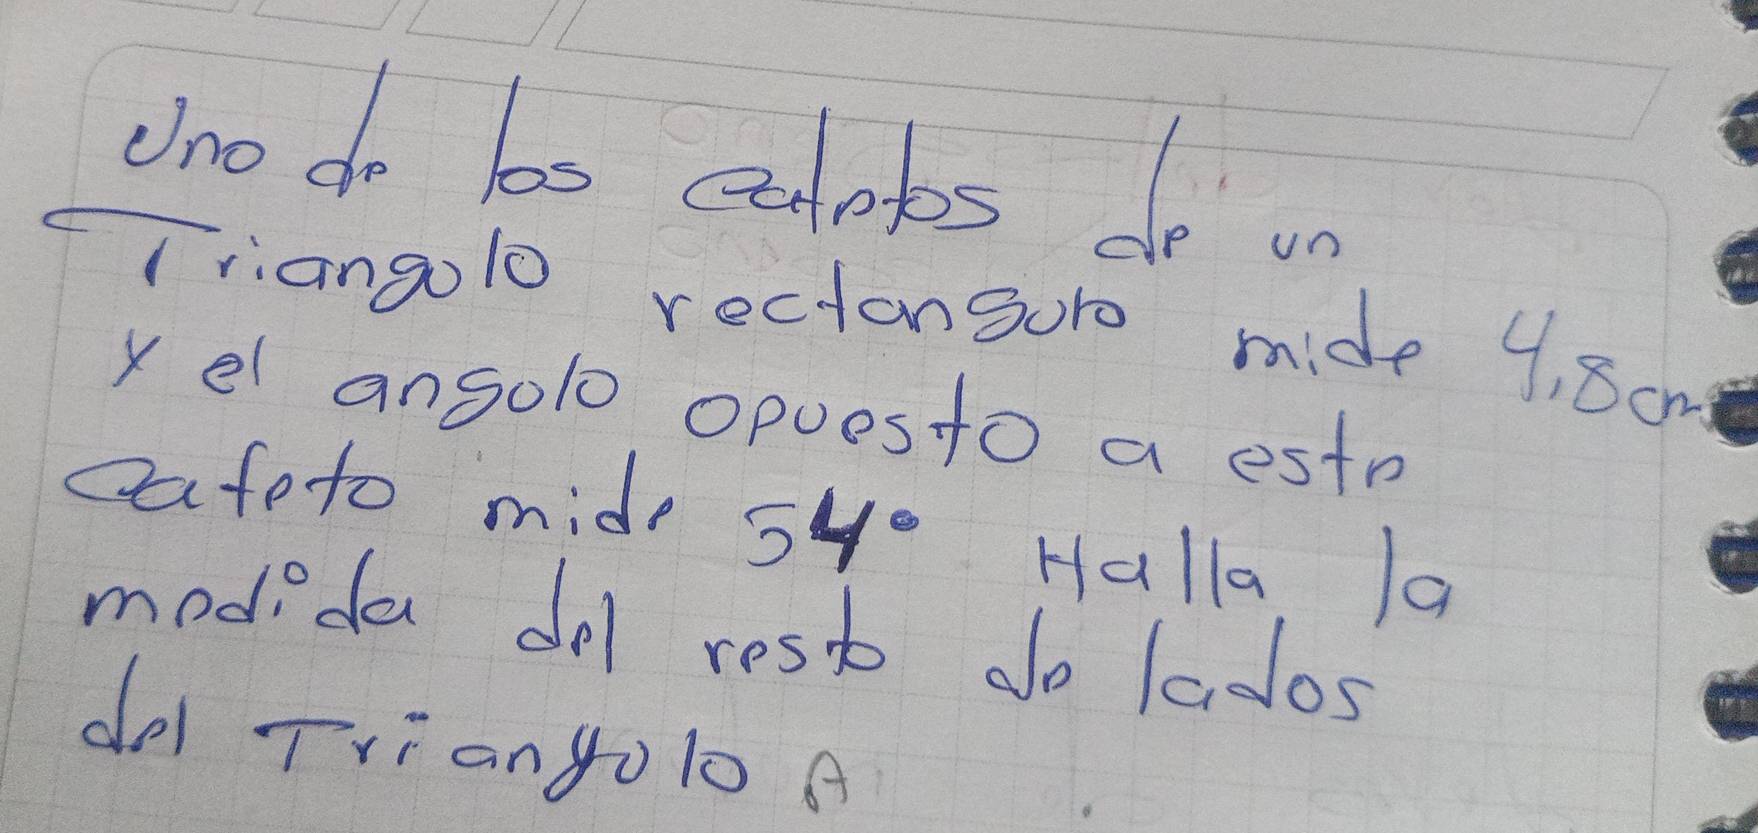 Uno de los catetos de un
Triangulo rectangulo mide 4,8cm
y el angolo opuesto a este
cateto mide 54° Halla la
medida del resto de lados
del Triangolo A